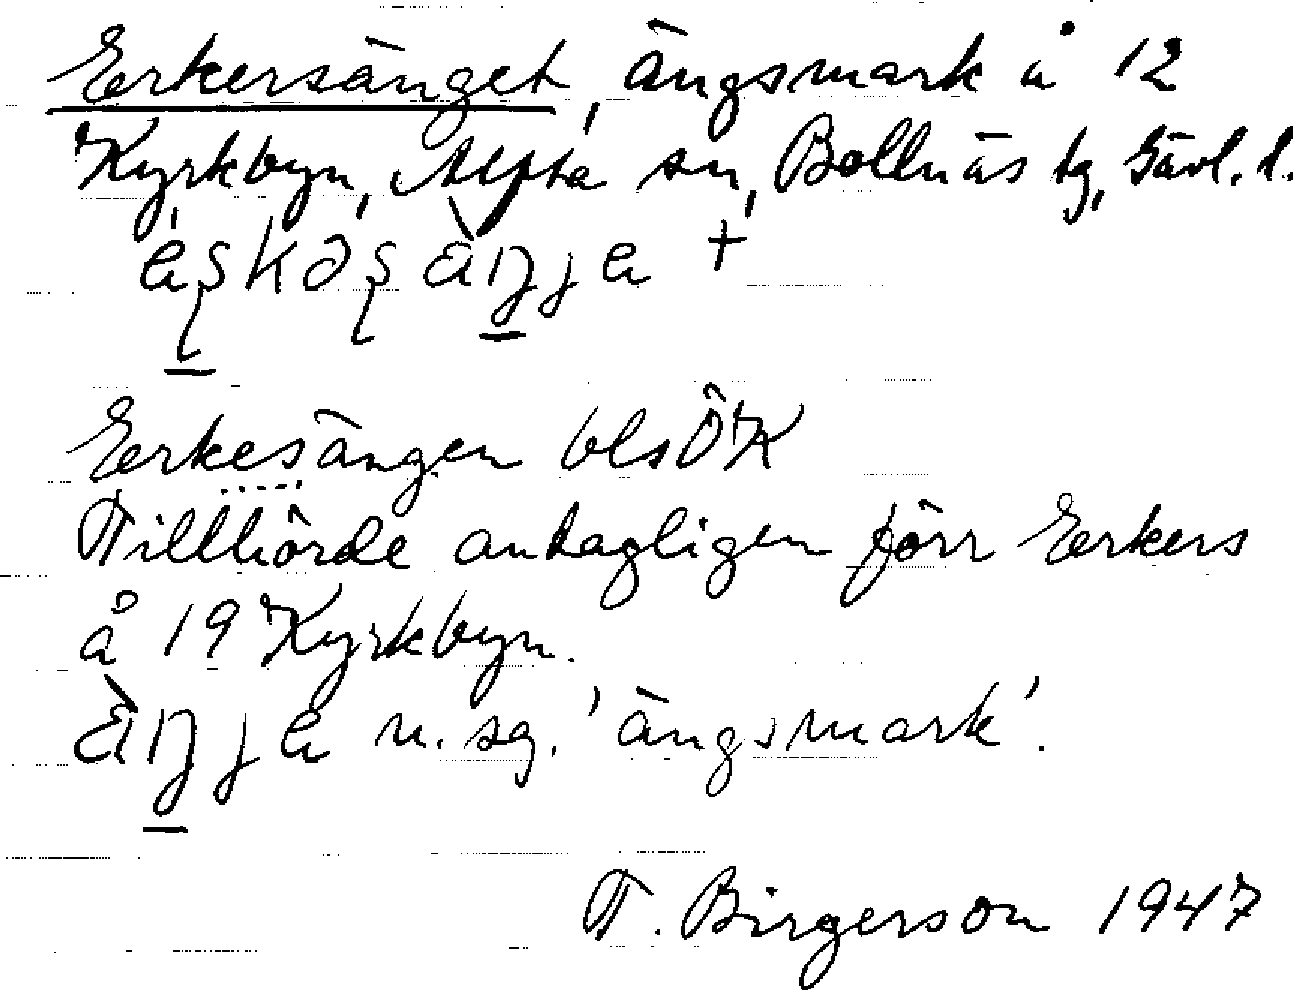 Erkersänget, ängsmark å 12
Kyrkbyn, Alfta sn, Bollnäs tg, Gävl. l.
Erkesängen bls ÖK
Tillhörde antagligen förr Erkers
å 19 Kyrkbyn.
n. sg. 'ängsmark'.
T. Birgerson 1947